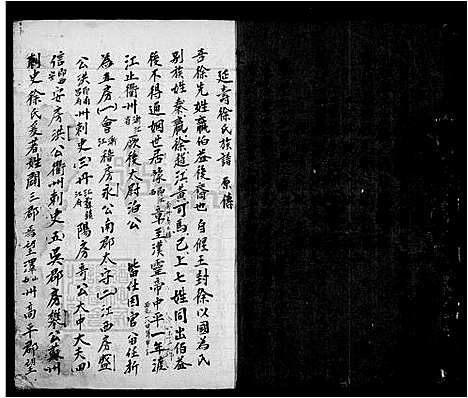 延壽徐氏族譜 原傳
吾徐先姓嬴伯益後裔也自偃王封徐以國為氏
別族姓秦嬴徐趙江黃司馬已上七姓同出伯益
後不得通姻世居豫章至漢靈帝中平一年渡
江止衢州 厥後太尉治公 皆仕因官留任折
為五房(一)會稽房永公南郡太守(二)江西房盤
公洪州刺史(三)丹陽房奇公大中大夫四
信安房洪公衢州刺史(五)吳郡房樊公蘇州
刺史徐氏爰著姓閥三郡為望澤州高平郡望